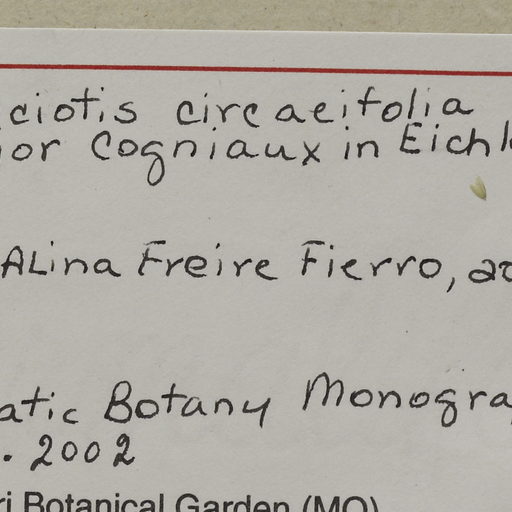 ciotis circaeifolia
ior Cogniaux in Eichl
Alina Freire Fierro, 20
atic Botany Monogra
. 2002
ri Botanical Garden (MO)